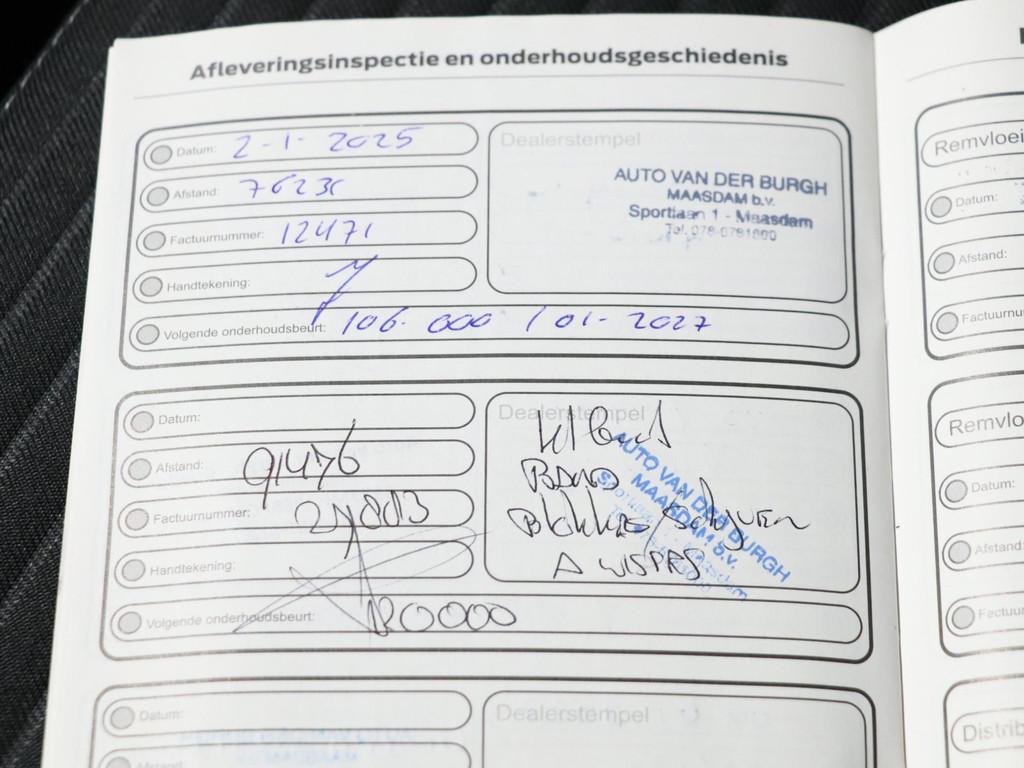 Afleveringsinspectie en onderhoudsgeschiedenis
Datum: 2-1-2025
Afstand:
Factuurnummer: 12471
Handtekening:
Volgende onderhoudsbeurt: 106.000 / 01-2027
Dealerstempel
AUTO VAN DER BURGH
MAASDAM b.v.
Sportlaan 1 - Maasdam
Datum:
Afstand: 91476
Factuurnummer:
Handtekening:
Volgende onderhoudsbeurt: 120000
Dealerstempel
AUTO VAN DER BURGH
MAASDAM b.v.
Datum:
Afstand:
Dealerstempel
Remvloei
Datum:
Afstand:
Factuurnu
Remvlo
Datum:
Afstand:
Factuur
Distrib